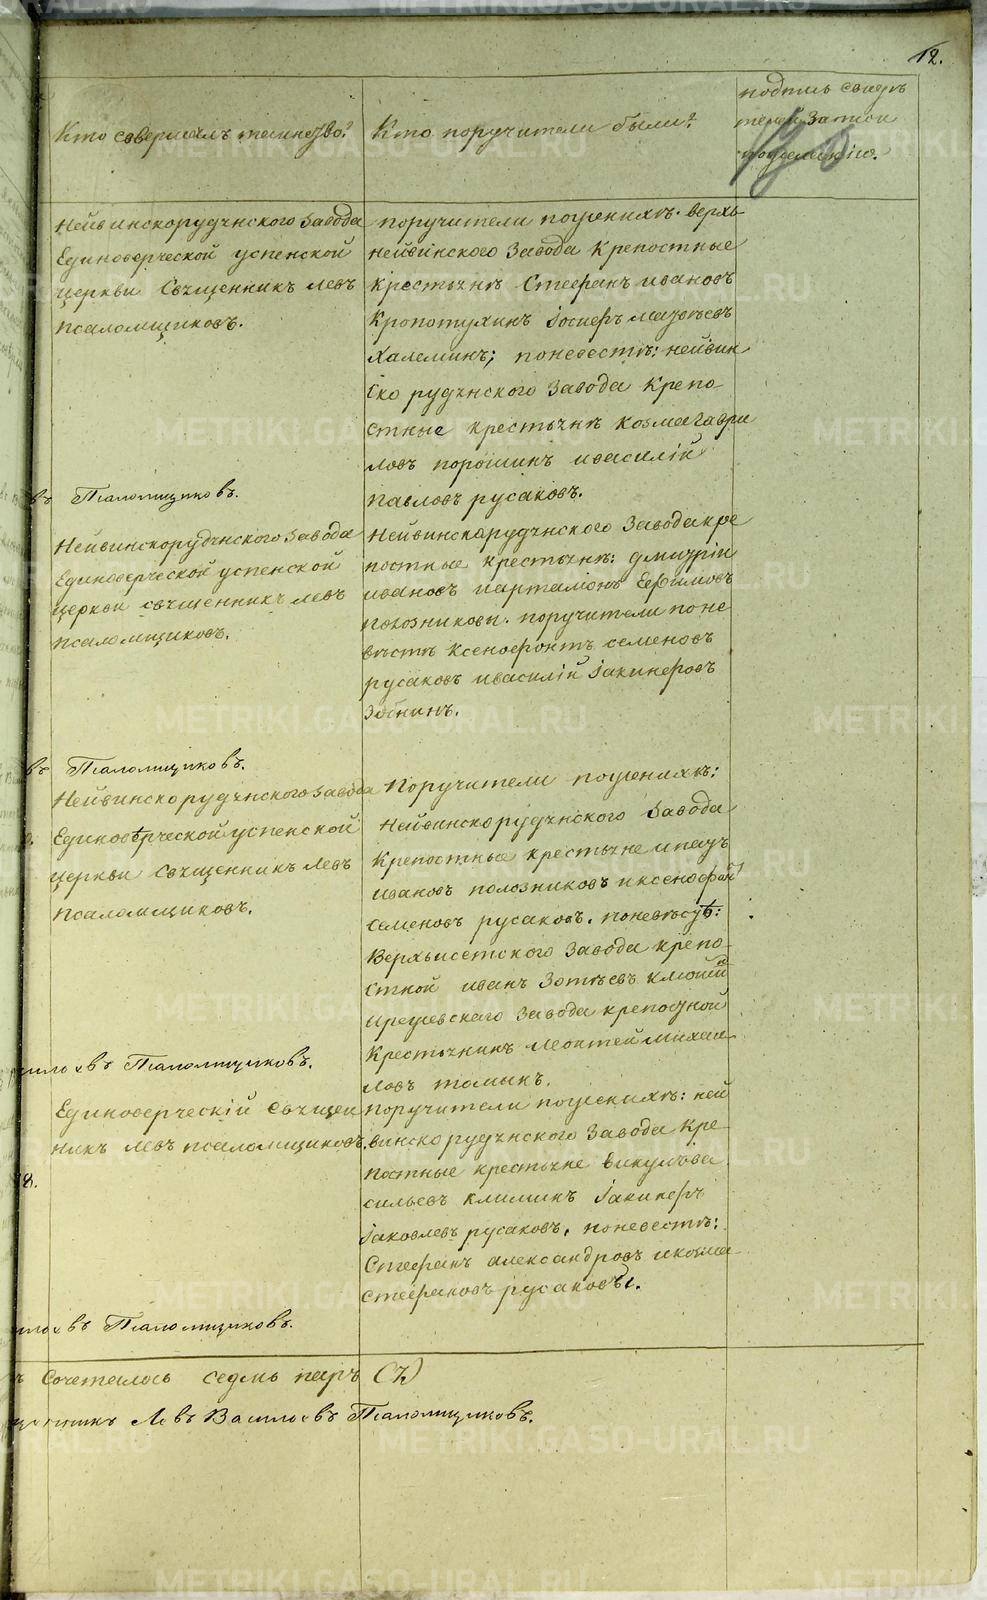 12.
Кто совершалъ таинство?
Кто поручители были?
подпись свидѣ
телей записи
по желанію.
Нейвинскорудянского завода
Единоверческой успенской
церкви Священникъ левъ
псаломщиковъ.
поручители по женихѣ: верхъ
нейвинского завода Крепостные
крестьянѣ Стефанъ ивановъ
Кропотухинъ Iосифъ
Халеминъ; по невестѣ: нейвин
ско рудянского завода Крепо
стные крестьянѣ козма гаври
ловъ порошинъ и василiй
павловъ русаковъ.
въ Псаломщиковъ.
Нейвинскорудянского завода
Единоверческой успенской
церкви священникъ левъ
псаломщиковъ.
Нейвинскорудянского завода кре
постные крестьянѣ: дмитрiи
ивановъ партамонъ Ефимовъ
полозниковы. поручители по не
вѣстѣ Ксенофонтъ семеновъ
русаковъ и василiй Iакинфовъ
Зобнинъ.
въ Псаломщиковъ.
Нейвинско рудянского завода
Единовѣрческой успенской
церкви Священникъ Левъ
псаломщиковъ.
Поручители по женихѣ:
Нейвинскорудянского завода
Крепостные крестьяне
ивановъ полозниковъ и ксенофонтъ
семеновъ русаковъ. по невѣстѣ:
Верхъисетского завода крепо
стной иванъ Зотѣевъ
завода крепостной
Крестьянинъ Леонтей михаи
ловъ
въ Псаломщиковъ.
Единоверческiй Священ
никъ левъ псаломщиковъ.
8.
поручители по женихѣ: ней
винско рудянского завода Кре
постные крестьяне викулъ ва
сильевъ климинъ Iакинфъ
Iаковлевъ русаковъ, по невестѣ:
Стефанъ александровъ и козма
стефановъ русаковы.
въ Псаломщиковъ.
Сочеталось седмь паръ (7.)
Левъ Васильевъ Псаломщиковъ.